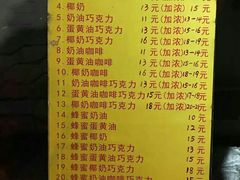 4. 椰奶 13元(加浓) 15元
5. 奶油巧克力 11元(加浓)13-14元
6. 蛋黄油巧克力 13元(加浓)15-16元
7. 椰奶巧克力 16元(加浓)18-19元
8. 奶油咖啡 11元(加浓)13-14元
9. 蛋黄油咖啡 13元(加浓)15-16元
10. 椰奶咖啡 16元(加浓)18-19元
11. 奶油咖啡巧克力 13元(加浓)15-16元
12. 蛋黄油咖啡巧克力 15元(加浓)17-18元
13. 椰奶咖啡巧克力 18元(加浓)20-21元
14. 蜂蜜奶油 10元
15. 蜂蜜蛋黄油 12元
16. 蜂蜜椰奶 15元
17. 蜂蜜奶油巧克力 13元
18. 蜂蜜蛋黄油巧克力 15元
19. 蜂蜜椰奶巧克力 18元
20. 蜂蜜奶油咖啡巧克力 15元